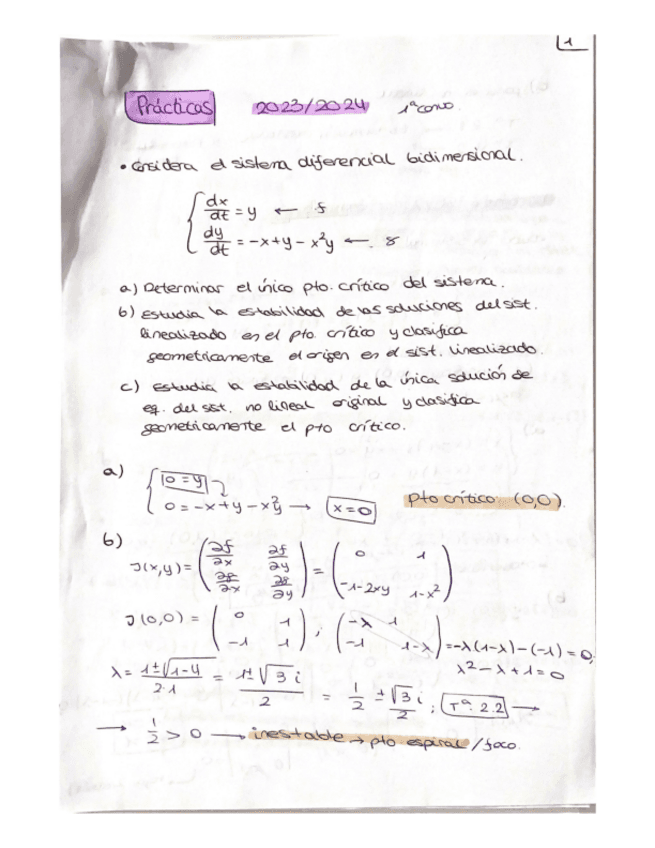 1
Prácticas 2023/2024 1ª conv.
• Considera el sistema diferencial bidimensional.
dx/dt = y ← f
dy/dt = -x+y-x²y ← g
a) Determinar el único pto. crítico del sistema.
b) Estudia la estabilidad de las soluciones del sist.
linealizado en el pto. crítico y clasifica
geometricamente el origen en el sist. linealizado.
c) Estudia la estabilidad de la única solución de
eq. del sist. no lineal original y clasifica
geometricamente el pto crítico.
a) { 0 = y
0 = -x+y-x²y → x=0 pto crítico (0,0)
b) J(x,y) = ( ∂f/∂x ∂f/∂y ; ∂g/∂x ∂g/∂y ) = ( 0 1 ; -1-2xy 1-x² )
J(0,0) = ( 0 1 ; -1 1 ) ; ( -λ 1 ; -1 1-λ ) = -λ(1-λ)-(-1) = 0;
λ²-λ+1=0
λ = 1±√1-4 / 2·1 = 1±√3 i / 2 = 1/2 ± √3 i / 2 ; Tª. 2.2 →
→ 1/2 > 0 → inestable → pto espiral / foco.